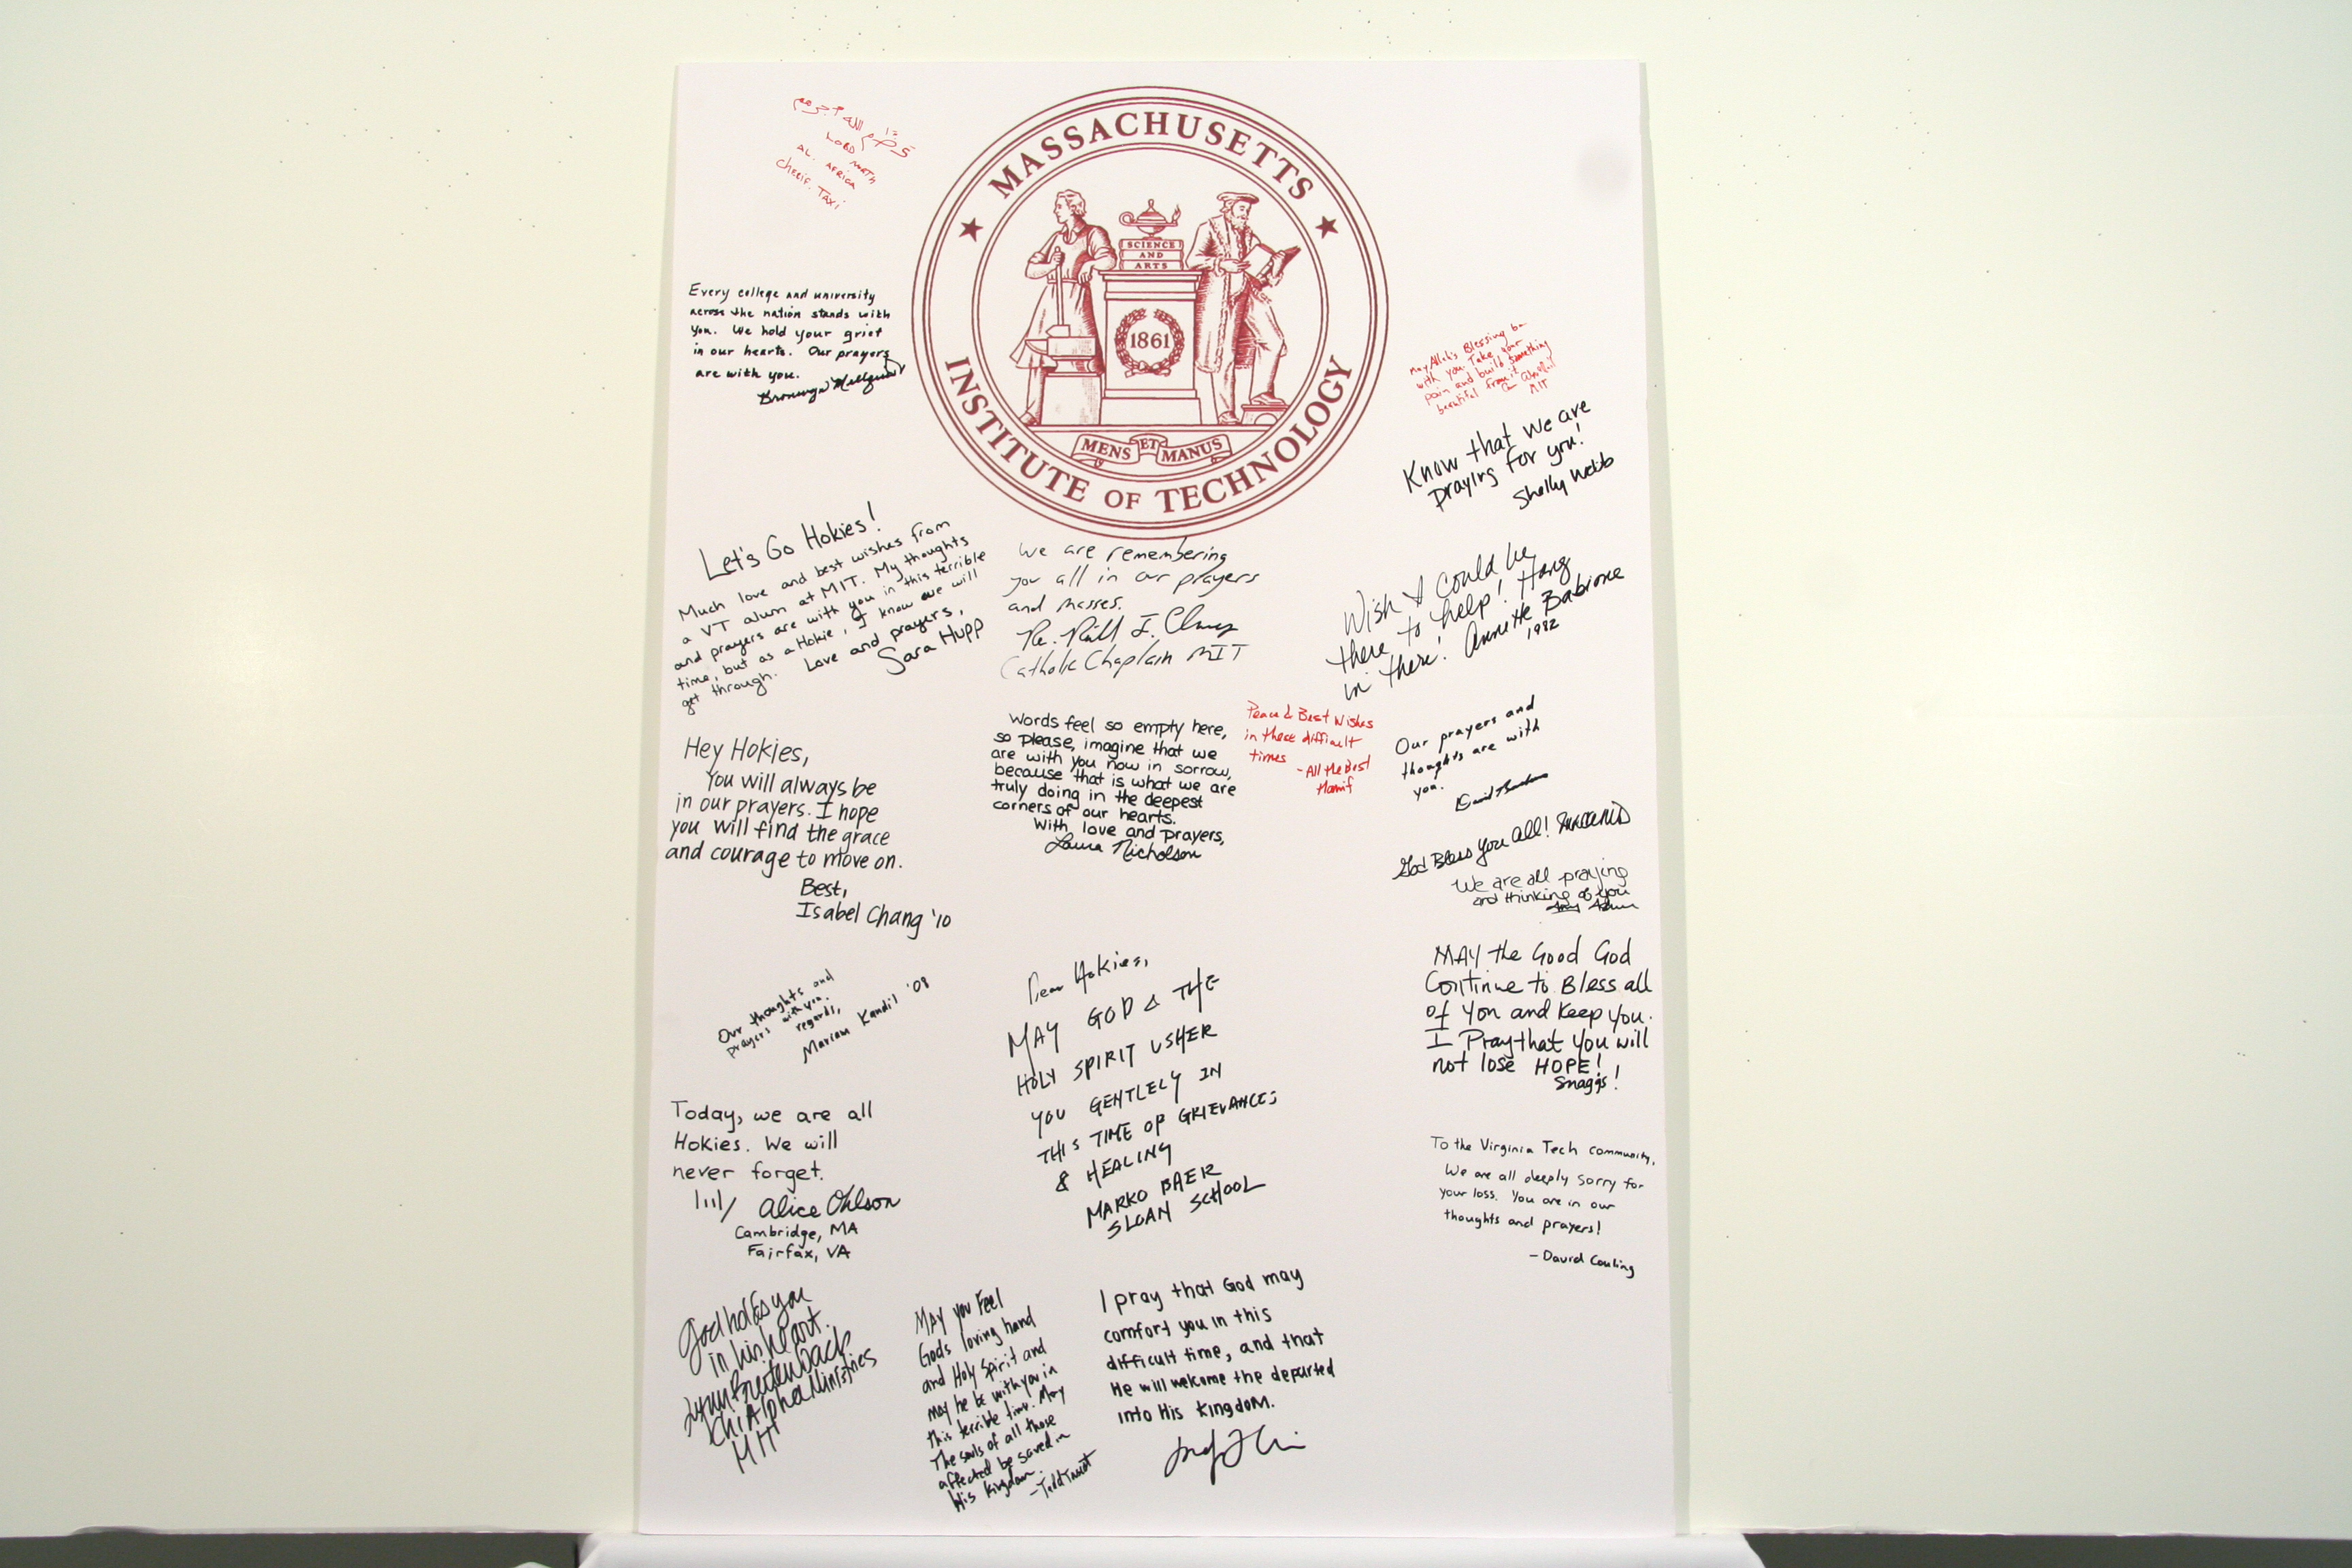 MASSACHUSETTS
INSTITUTE OF TECHNOLOGY
SCIENCE
AND
ARTS
1861
MENS ET MANUS
LORD
AL. AFRICA
Cherif. Taxi
Every college and university
across the nation stands with
you. We hold your grief
in our hearts. Our prayers
are with you.
Bronwyn
May Allah's Blessing be
with you. Take your
pain and build something
beautiful from it
MIT
Know that we are
praying for you!
Shelly Webb
Let's Go Hokies!
Much love and best wishes from
a VT alum at MIT. My thoughts
and prayers are with you in this terrible
time, but as a Hokie, I know we will
get through. Love and prayers,
Sara Hupp
We are remembering
you all in our prayers
and masses.
Catholic Chaplain MIT
Wish I could be
there to help! Hang
in there! Annette Babione
1982
Words feel so empty here,
so please, imagine that we
are with you now in sorrow,
because that is what we are
truly doing in the deepest
corners of our hearts.
With love and prayers,
Laura Nicholson
Peace & Best Wishes
in these difficult
times
- All the Best
Our prayers and
thoughts are with
you.
David
Hey Hokies,
You will always be
in our prayers. I hope
you will find the grace
and courage to move on.
Best,
Isabel Chang '10
God Bless you all!
We are all praying
and thinking of you
MAY the Good God
Continue to Bless all
of You and Keep you.
I Pray that You will
not lose HOPE!
Snaggs!
Our thoughts and
prayers with you.
regards,
Mariam Kandil '08
Dear Hokies,
MAY GOD & THE
HOLY SPIRIT USHER
YOU GENTLELY IN
THIS TIME OF GRIEVANCE;
& HEALING
MARKO BAER
SLOAN SCHOOL
Today, we are all
Hokies. We will
never forget.
Alice Ohlson
Cambridge, MA
Fairfax, VA
To the Virginia Tech community,
We are all deeply sorry for
your loss. You are in our
thoughts and prayers!
- David Couling
God holds you
in his heart.
Lynn Breitenbach
Chi Alpha Ministries
MIT
MAY you Feel
Gods loving hand
and Holy Spirit and
may he be with you in
this terrible time. May
The souls of all those
affected be saved in
His kingdom.
I pray that God may
comfort you in this
difficult time, and that
He will welcome the departed
into His kingdom.